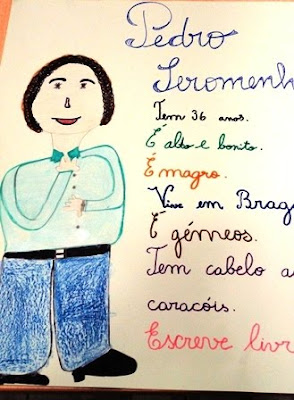 Pedro
Seromenh
Tem 36 anos.
É alto e bonito.
É magro.
Vive em Brag
É gémeos.
Tem cabelo a
caracóis.
Escreve livr